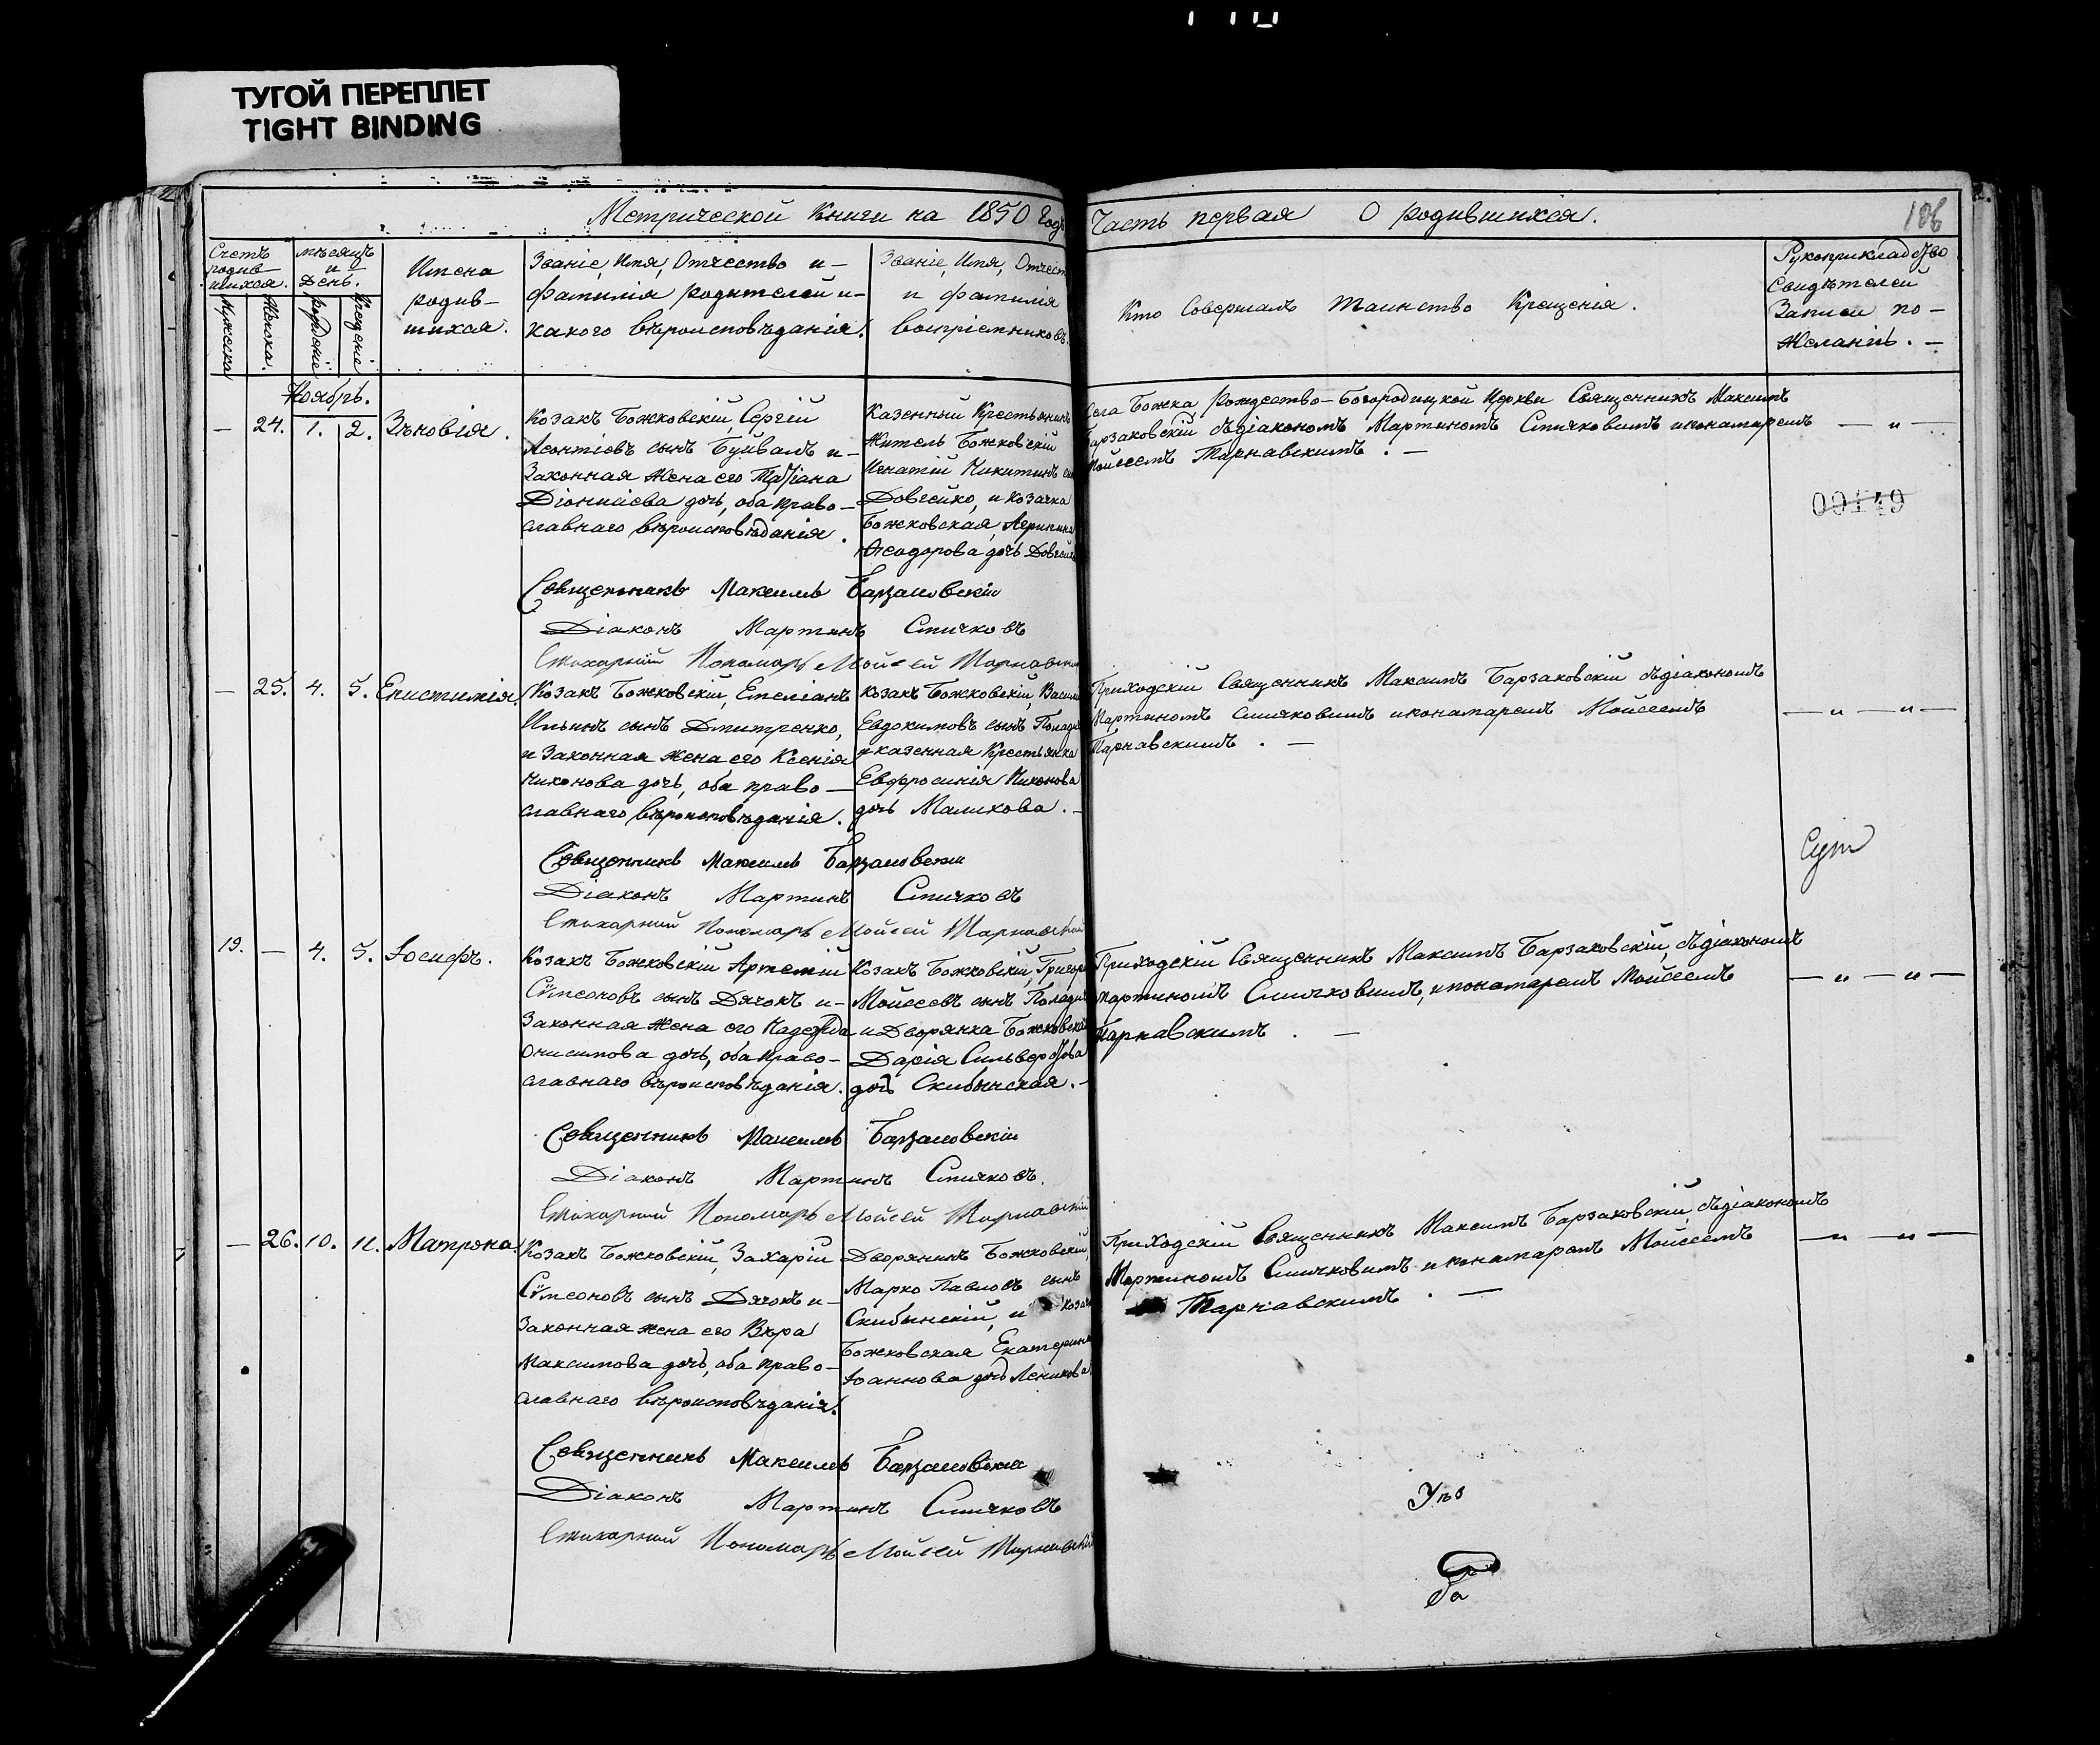 ТУГОЙ ПЕРЕПЛЕТ
TIGHT BINDING
Метрической Книги на 1850 Годъ
Часть первая О родившихся.
106
Счетъ родив-шихся.
Мужеска
Женска.
мѣсяцъ и День.
рожденіе
Крещеніе
Имена
родив-
шихся.
Званіе, Имя, Отчество и-
фамилія родителей и-
какого вѣроисповѣданія.
Званіе, Имя, Отчест
и фамилія
воспріемниковъ.
Кто Совершалъ Таинство Крещенія.
Рукоприкладство
Свидѣтелей
Записи по-
Желанію. —
Ноябрь.
— 24. 1. 2. Зѣновія.
Козакъ Божковскій, Сергій
Леонтіевъ сынъ Буйвалъ и-
Законная Жена его Татіана
Діонисіева дочь, оба право-
славнаго вѣроисповѣданія.
Казенный Крестьянинъ
Житель Божковскій
Игнатій Никитинъ
Довгейко, и козачка
Божковская, Агрипина
Феодорова дочь
Села Божка Рождество-Богородицкой Церкви Священникъ Максимъ
Барзаковскій съ діакономъ Мартиномъ Спичковимъ и понамаремъ
Мойсеемъ Тарнавскимъ. —
— „ —
00449
Священникъ Максимъ Барзаковскій
Діаконъ Мартинъ Спичковъ
Стихарный Пономарь Мойсей Тарнавскій
— 25. 4. 5. Епистимія.
Козакъ Божковскій, Емеліанъ
Ильинъ сынъ Дмитренко,
и Законная жена его Ксенія
Никонова дочь, оба право-
славнаго вѣроисповѣданія.
Козакъ Божковскій,
Евдокимовъ сынъ
и казенная Крестьянка
Евфросинія Никонова
дочь Маликова. —
Приходскій Священникъ Максимъ Барзаковскій съ діакономъ
Мартиномъ Спичковимъ и понамаремъ Мойсеемъ
Тарнавскимъ. —
— „ — „ —
Священникъ Максимъ Барзаковскій
Діаконъ Мартинъ Спичковъ
Стихарный Пономарь Мойсей Тарнавскій
19. — 4. 5. Іосифъ.
Козакъ Божковскій Артемій
Сѵмеоновъ сынъ Дячокъ и-
Законная жена его Надежда
Онисимова дочь, оба право-
славнаго вѣроисповѣданія.
Козакъ Божковскій,
Мойсеевъ сынъ
и Дворянка Божковская
Дарія Сильверстова
дочь Скибынская. -
Приходскій Священникъ Максимъ Барзаковскій, съ діакономъ
Мартиномъ Спичковимъ, и понамаремъ Мойсеемъ
Тарнавскимъ. —
— „ — „ —
Священникъ Максимъ Барзаковскій
Діаконъ Мартинъ Спичковъ.
Стихарный Пономарь Мойсей Тарнавскій
— 26. 10. 11. Матрона.
Козакъ Божковскій, Захарій
Сѵмеоновъ сынъ Дячокъ и-
Законная жена его Вѣра
Максимова дочь, оба право-
славнаго вѣроисповѣданія.
Дворянинъ Божковскій,
Марко Павловъ сынъ
Скибынскій, и
Божковская Екатерина
Іоаннова дочь
Приходскій Священникъ Максимъ Барзаковскій, съ діакономъ
Мартиномъ Спичковимъ и понамаремъ Мойсеемъ
Тарнавскимъ. —
— „ — „ —
Священникъ Максимъ Барзаковскій
Діаконъ Мартинъ Спичковъ
Стихарный Пономарь Мойсей Тарнавскій